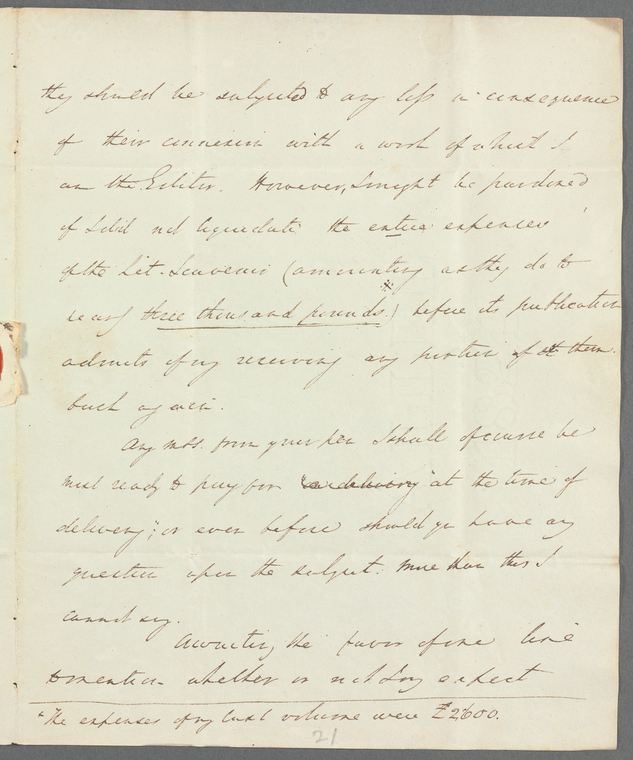 they should be subjected to any loss in consequence
of their connexion with a work of which I
am the Editor. However, I might be pardoned
if I did not liquidate the entire expenses
of the Lit. Souvenir (amounting as they do to
nearly three thousand pounds.*) before its publication
admits of my receiving any portion of them
back again.
Any mss. from your pen I shall of course be
most ready to pay for "on delivery" at the time of
delivery"; or even before should you have any
question upon the subject. More than this I
cannot say.
Awaiting the favor of one line
to mention whether or not I may expect
* The expenses of my last volume were £2600.
21